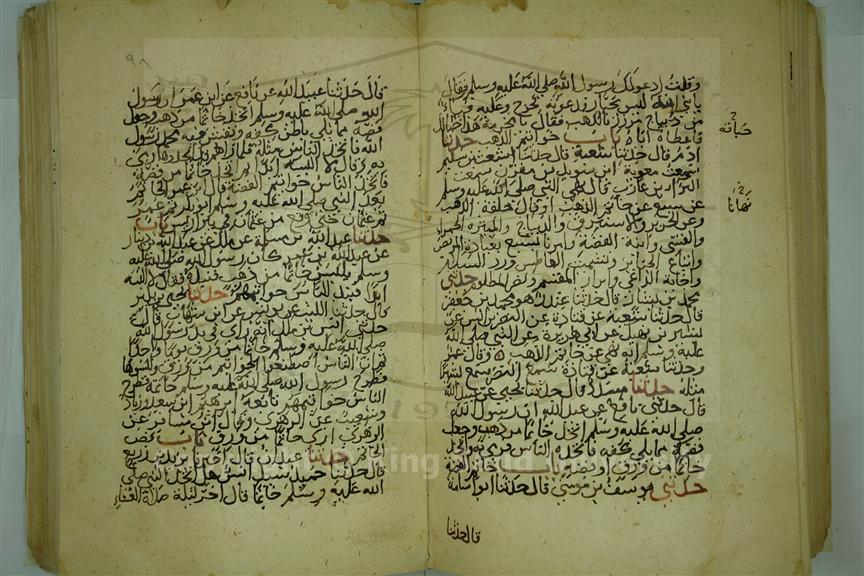 وقلت ادعو لك رسول الله صلى الله عليه وسلم فقال
يا بني انه ليس بجبار فدعوته فخرج وعليه قباء
من ديباج مزرر بالذهب فقال يا مخرمة هذا خبأناه لك
فاعطاه اياه باب خواتيم الذهب حدثنا
ادم قال حدثنا شعبة قال حدثنا اشعث بن سليم
سمعت معوية ابن سويد بن مقرن سمعت
البراء بن عازب قال نهى النبي صلى الله عليه وسلم
عن سبع عن خاتم الذهب او قال حلقة الذهب
وعن الحرير والاستبرق والديباج والميثرة الحمراء
والقسي وانية الفضة وامرنا بسبع بعيادة المريض
واتباع الجنائز وتشميت العاطس ورد السلام
واجابة الداعي وابرار المقسم ونصر المظلوم حدثني
محمد بن بشار قال حدثنا غندر هو محمد بن جعفر
قال حدثنا شعبة عن قتادة عن النضر بن انس عن
بشير بن نهيك عن ابي هريرة عن النبي صلى الله
عليه وسلم انه نهى عن خاتم الذهب وقال عمرو
وحدثنا شعبة عن قتادة سمع النضر سمع بشيرا
مثله حدثنا مسدد قال حدثنا يحيى عن عبيد الله
قال حدثني نافع عن عبد الله ان رسول الله
صلى الله عليه وسلم اتخذ خاتما من ذهب وجعل
فصه مما يلي كفه فاتخذه الناس فرمى به واتخذ
خاتما من ورق او فضة باب خاتم الفضة
حدثني يوسف بن موسى قال حدثنا ابو اسامة
قال حدثنا
نهانا
٩٨
قال حدثنا عبيد الله عن نافع عن ابن عمر ان رسول
الله صلى الله عليه وسلم اتخذ خاتما من ذهب وجعل
فصه مما يلي باطن كفه ونقش فيه محمد رسول
الله فاتخذ الناس مثله فلما راهم قد اتخذوها رمى
به وقال لا البسه ابدا ثم اتخذ خاتما من فضة
فاتخذ الناس خواتيم الفضة قال ابن عمر فلبس الخاتم
بعد النبي صلى الله عليه وسلم ابو بكر ثم عمر
ثم عثمان حتى وقع من عثمان في بئر اريس باب
حدثنا عبد الله بن مسلمة عن ملك عن عبد الله بن دينار
عن عبد الله بن عمر كان رسول الله صلى الله عليه
وسلم يلبس خاتما من ذهب فنبذه فقال لا البسه
ابدا فنبذ الناس خواتيمهم حدثنا يحيى بن بكير
قال حدثنا الليث عن يونس عن ابن شهاب قال
حدثني انس بن ملك انه راى في يد رسول الله
صلى الله عليه وسلم خاتما من ورق يوما واحدا
ثم ان الناس اصطنعوا الخواتيم من ورق ولبسوها
فطرح رسول الله صلى الله عليه وسلم خاتمه فطرح
الناس خواتيمهم تابعه ابرهيم ابن سعد وزياد
وشعيب عن الزهري وقال ابن مسافر عن
الزهري ارى خاتما من ورق باب فص
الخاتم حدثنا عبدان قال اخبرنا يزيد بن زريع
قال حدثنا حميد سئل انس هل اتخذ النبي صلى
الله عليه وسلم خاتما قال اخر ليلة صلاة العشاء